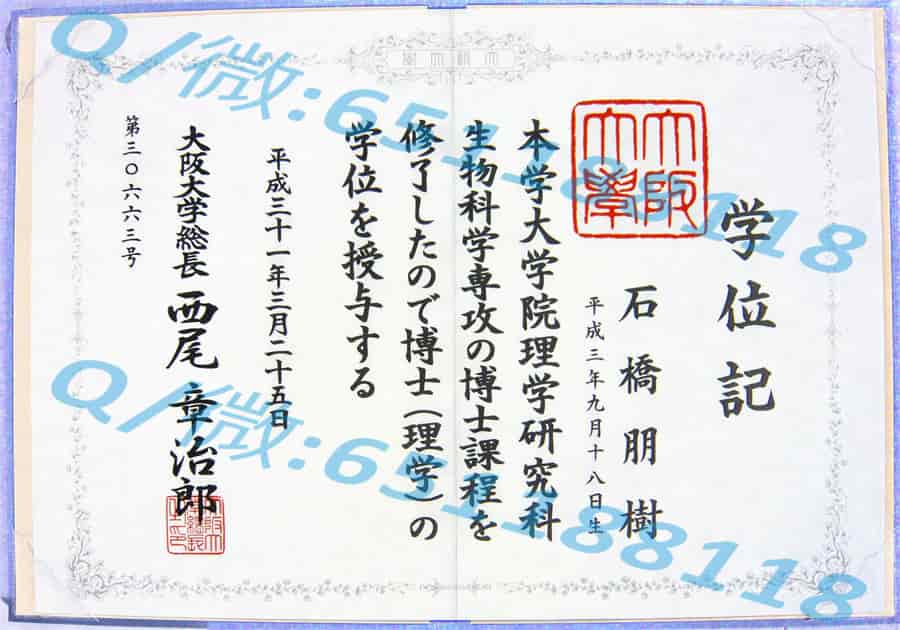 大阪大學
学位記
大阪大學
石橋朋樹
平成三年九月十八日生
本学大学院理学研究科
生物科学専攻の博士課程を
修了したので博士(理学)の
学位を授与する
平成三十一年三月二十五日
大阪大学総長 西尾章治郎
第三〇六六三号
Q/微:651188118
Q/微:651188118